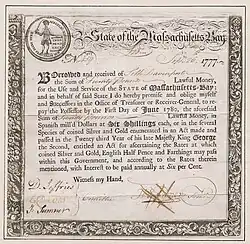 State of the Massachusetts-Bay
1777
Borrowed and received of
the Sum of Lawful Money,
for the Use and Service of the STATE of MASSACHUSETTS-BAY;
and in behalf of said State I do hereby promise and oblige myself
and Successors in the Office of Treasurer or Receiver-General, to re-
pay the Possessor by the First Day of June 1780, the aforesaid
Sum of Lawful Money, in
Spanish mill'd Dollars at Six Shillings each, or in the several
Species of coined Silver and Gold enumerated in an Act made and
passed in the Twenty third Year of his late Majesty King George
the Second, entitled An Act for ascertaining the Rates at which
coined Silver and Gold, English Half Pence and Farthings may pass
within this Government, and according to the Rates therein
mentioned, with Interest to be paid annually at Six per Cent.
Witness my Hand,